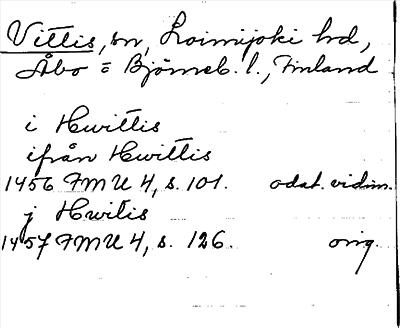 Vittis, sn, Loimijoki hd,
Åbo = Björneb. l., Finland
i Hwittis
ifrån Hwittis
1456 FMU 4, s. 101. odat. vidim.
j Hwitis
1457 FMU 4, s. 126. orig.